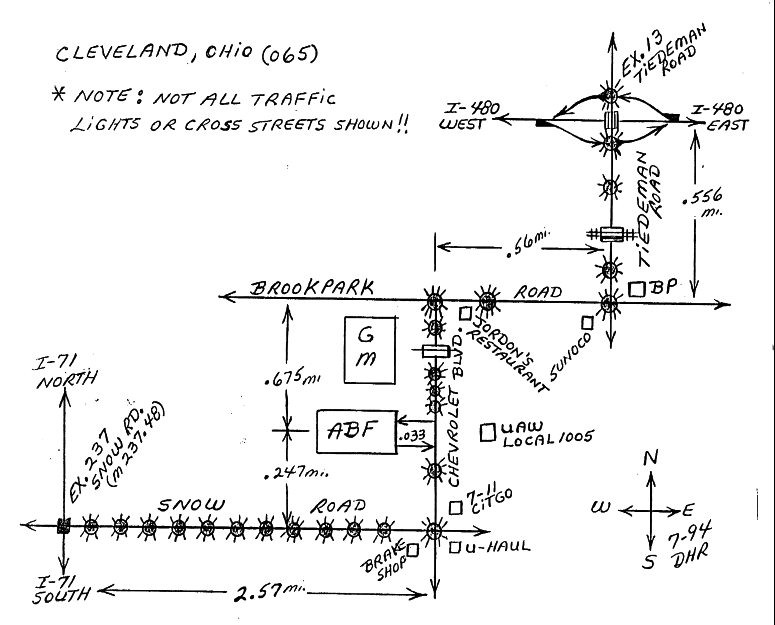 CLEVELAND, OHIO (065)
* NOTE: NOT ALL TRAFFIC
LIGHTS OR CROSS STREETS SHOWN!!
EX. 13
TIEDEMAN
ROAD
I-480
WEST
I-480
EAST
TIEDEMAN
ROAD
.556
mi.
.56 mi.
BROOKPARK ROAD
BP
SUNOCO
JORDON'S
RESTAURANT
G
M
CHEVROLET BLVD.
.675 mi
I-71
NORTH
EX. 237
SNOW RD.
(m 237.48)
ABF
.033
UAW
LOCAL 1005
.247 mi.
7-11
CITGO
SNOW ROAD
BRAKE
SHOP
U-HAUL
I-71
SOUTH
2.57 mi.
N
W E
S
7-94
DHR